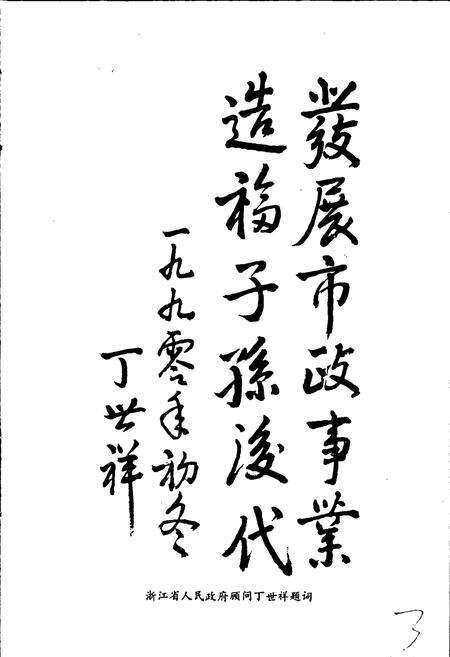 發展市政事業
造福子孫後代
一九九零年初冬
丁世祥
浙江省人民政府顾问丁世祥题词